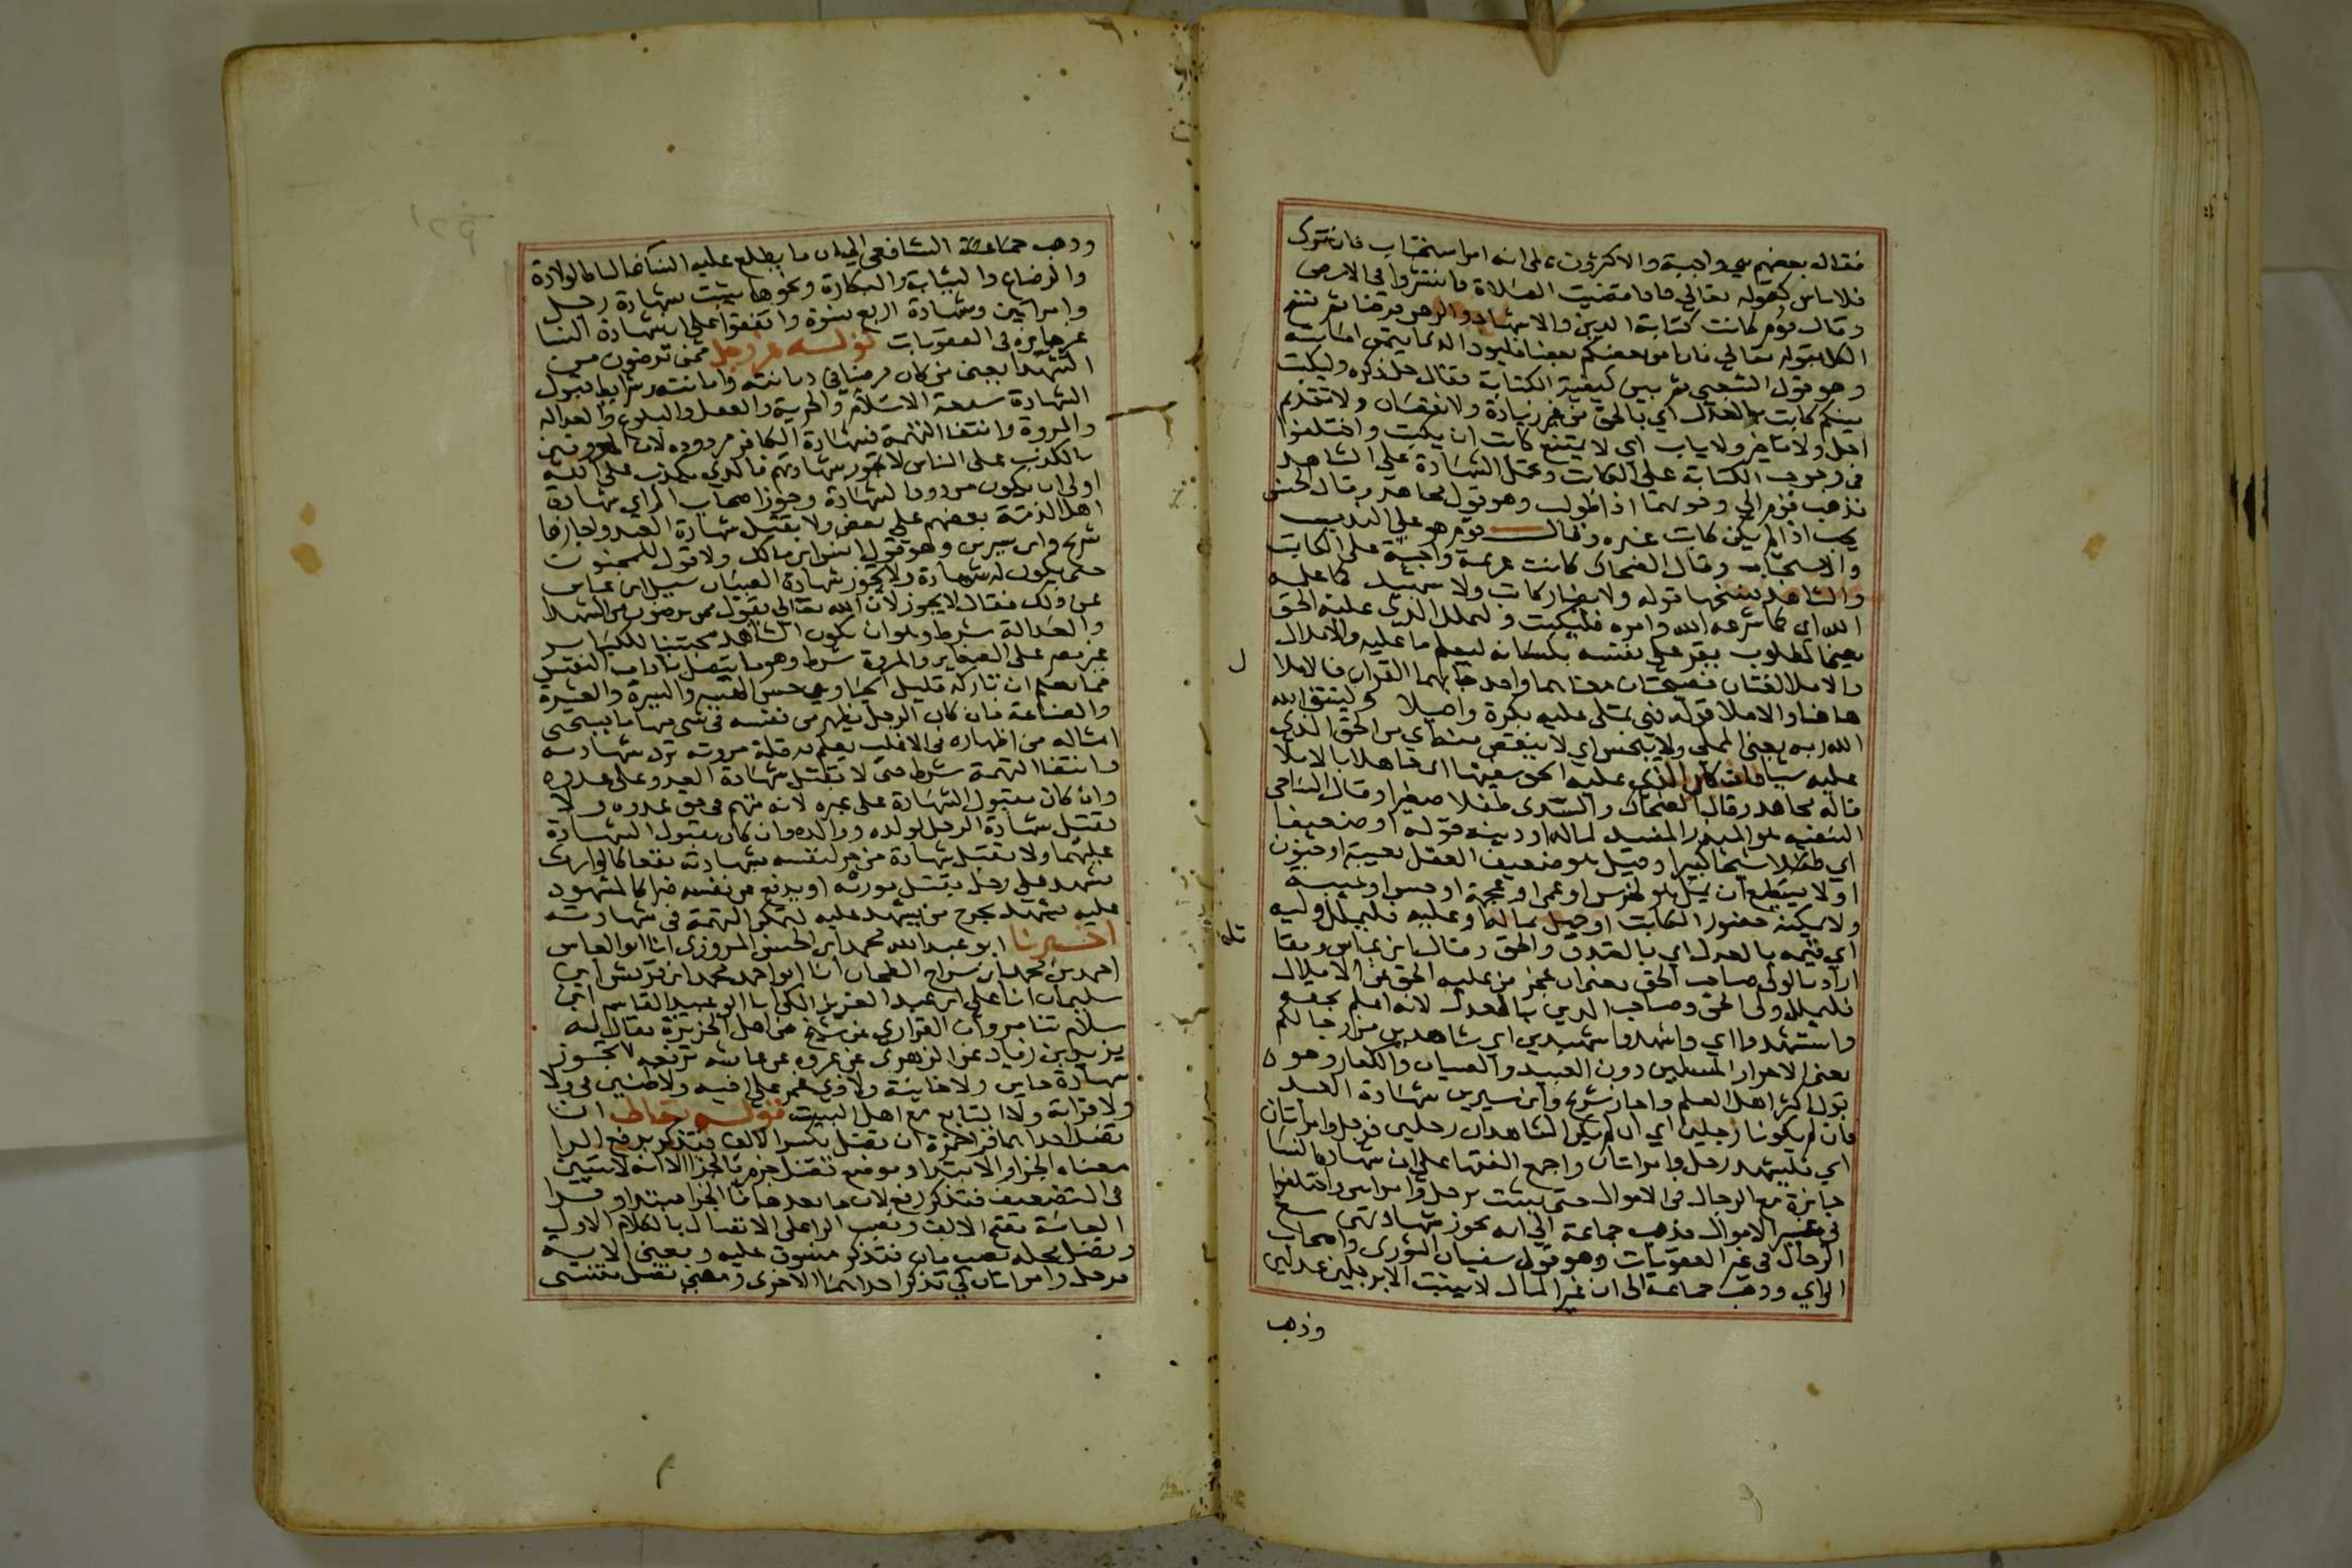 فقال بعضهم هي واجبة والاكثرون على انه امر استحباب فان ترك
فلا باس كقوله تعالى فاذا قضيت الصلاة فانتشروا في الارض
وقال قوم كانت كتابة الدين والاشهاد والرهن فرضا ثم نسخ
الكل بقوله تعالى فان امن بعضكم بعضا فليود الذي ايتمن امانته
وهو قول الشعبي ثم بين كيفية الكتابة فقال جل ذكره وليكتب
بينكم كاتب بالعدل اي بالحق من غير زيادة ولا نقصان ولا تقديم
اجل ولا تاخير ولا ياب اي لا يمتنع كاتب ان يكتب واختلفوا
في وجوب الكتابة على الكاتب وتحمل الشهادة على الشاهد
فذهب قوم الي وجوبهما اذا طولب وهو قول مجاهد وقال الحسن
يجب اذا لم يكن كاتب غيره وقال قوم هو على الندب
والاستحباب وقال الضحاك كانت عزيمة واجبة على الكاتب
والشاهد فنسخها قوله ولا يضار كاتب ولا شهيد كما علمه
الله اي كما شرعه الله وامره فليكتب وليملل الذي عليه الحق
يعني المطلوب يقر على نفسه بلسانه ليعلم ما عليه والاملال
والاملا لغتان فصيحتان معناهما واحد جا بهما القران فالاملا
هاهنا والاملا قوله فهي تملى عليه بكرة واصيلا وليتق الله
الله ربه يعني المملي ولا يبخس اي لا ينقص منه اي من الحق الذي
عليه شيا فان كان الذي عليه الحق سفيها اي جاهلا بالاملا
قاله مجاهد وقال الضحاك والسدى طفلا صغيرا وقال الشافعي
السفيه هو المبذر المفسد لماله او دينه قوله او ضعيفا
اي شيخا كبيرا وقيل هو ضعيف العقل لعته او جنون
او لا يستطيع ان يمل هو لخرس او عمى او عجمة او حبس او غيبة
ولا يمكنه حضور الكاتب او جهل بماله او عليه فليملل وليه
اي قيمه بالعدل اي بالصدق والحق وقال ابن عباس ومقا
تل
اراد بالولى صاحب الحق يعني ان عجز من عليه الحق من الاملال
فليملل ولي الحق وصاحب الدين بالعدل لانه اعلم بحقه
واستشهدوا اي واشهدوا شهيدين اي شاهدين من رجالكم
يعني الاحرار المسلمين دون العبيد والصبيان والكفار وهو
قول اكثر اهل العلم واجاز شريح وابن سيرين شهادة العبد
فان لم يكونا رجلين اي ان لم يكن الشاهدان رجلين فرجل وامراتان
اي فليشهد رجل وامراتان واجمع الفقها على ان شهادة النسا
جايزة مع الرجال في الاموال حتى يثبت برجل وامراتين واختلفوا
في غير الاموال فذهب جماعة الي انه يجوز شهادتهن مع
الرجال في غير العقوبات وهو قول سفيان الثورى واصحاب
الراي وذهب جماعة الى ان غير المال لا يثبت الا برجلين عدلين
وذهب
وذهب جماعة الشافعي الى ان ما يطلع عليه النسا غالبا كالولادة
والرضاع والثيابة والبكارة ونحوها يثبت بشهادة رجل
وامراتين وشهادة اربع نسوة واتفقوا على ان شهادة النسا
غير جايزة في العقوبات قوله عز وجل ممن ترضون من
الشهدا يعني من كان مرضيا في ديانته وامانته وشرايط قبول
الشهادة سبعة الاسلام والحرية والعقل والبلوغ والعدالة
والمروة وانتفا التهمة فشهادة الكافر مردودة لان المعروفين
بالكذب على الناس لا تجوز شهادتهم فالذي يكذب على الله
اولى ان يكون مردود الشهادة وجوز اصحاب الراي شهادة
اهل الذمة بعضهم على بعض ولا يقبل شهادة العبد واجازها
شريح وابن سيرين وهو قول انس ابن مالك ولا قول للمجنون
حتى يكون له شهادة ولا يجوز شهادة الصبيان سيل ابن عباس
عن ذلك فقال لا يجوز لان الله تعالى يقول ممن ترضون من الشهدا
والعدالة شرط وهو ان يكون الشاهد مجتنبا للكباير
غير مصر على الصغاير والمروة شرط وهو ما يتصل باداب النفس
مما يعلم ان تاركه قليل الحيا وهي حسن الهيية والسيرة والعشرة
والصناعة فان كان الرجل يظهر من نفسه في شي منها ما يستحي
امثاله من اظهاره في الاغلب يعلم به قلة مروته ترد شهادته
وانتفا التهمة شرط حتى لا تقبل شهادة العدو على عدوه
وان كان مقبول الشهادة على غيره لانه متهم في حق عدوه ولا
تقبل شهادة الرجل لولده ووالده وان كان مقبول الشهادة
عليهما ولا تقبل شهادة من يجر لنفسه بشهادته نفعا كالوارث
يشهد على رجل بقتل مورثه او يدفع عن نفسه ضرا كالمشهود
عليه يشهد بجرح من يشهد عليه لتمكن التهمة في شهادته
اخبرنا ابو عبد الله محمد ابن الحسن المروزى انا ابو العباس
احمد بن محمد ابن سراج الطحان انا ابو احمد محمد ابن قريش ابن
سليمان انا على ابن عبد العزيز المكي انا ابو عبيد القاسم ابن
سلام ثنا مروان الفزاري عن شيخ من اهل الجزيرة يقال له
يزيد بن زياد عن الزهرى عن عروة عن عايشة ترفعه لا تجوز
شهادة خاين ولا خاينة ولا ذي غمر على اخيه ولا ظنين في ولا
ولا قرابة ولا التابع مع اهل البيت قوله تعالى ان
تضل احداهما قرا حمزة ان تضل بكسر الالف فتذكر برفع الرا
معناه الجزا والابتدا وموضع تضل جزم بالجزا الا انه لا يتبين
في التضعيف فتذكر رفع لان ما بعد فا الجزا مبتدا وقرا
العامة بفتح الالف ونصب الرا على الاتصال بالكلام الاول
وتضل محله نصب بان فتذكر منسوق عليه ويعني الاية
فرجل وامراتان كي تذكر احداهما الاخرى ومعنى تضل تنسى